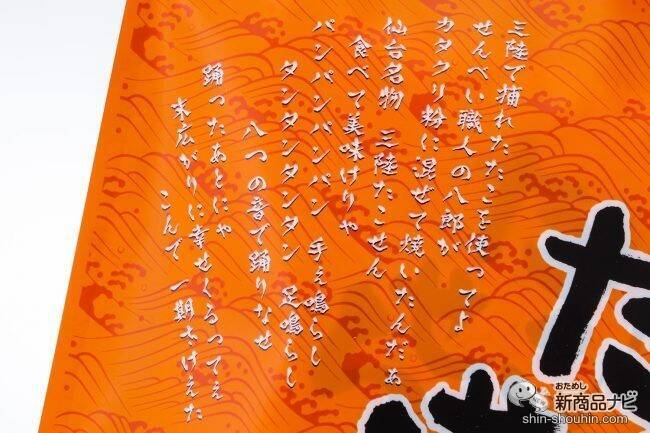 三陸で捕れたたこを使ってよ
せんべい職人の八郎が
カタクリ粉に混ぜて焼いたんだぁ
仙台名物 三陸たこせん
食べて美味けりゃ
パンパンパンパン 手ぇ鳴らし
タンタンタンタン 足鳴らし
八つの音で踊りなせ
踊ったあとにゃ
末広がりに幸せくるってぇ
こんで一期さけぇた
た
おためし
新商品ナビ
shin-shouhin.com